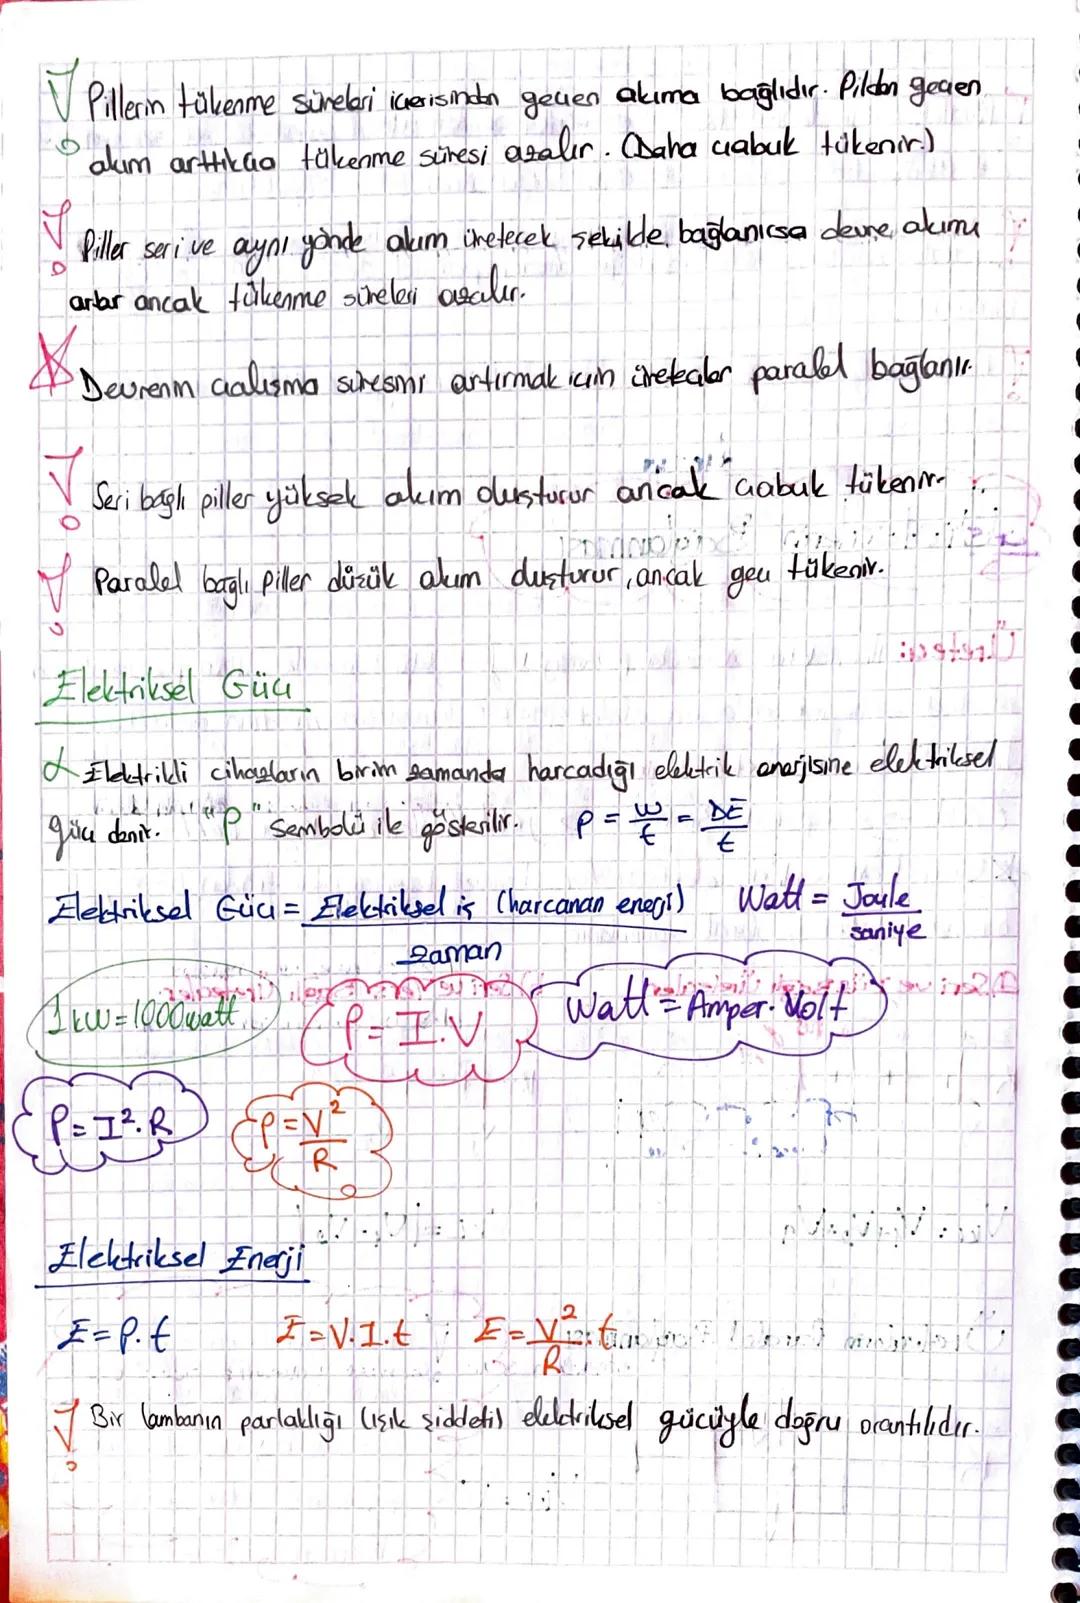 Pillerin tükenme süreleri içerisinden geçen akıma bağlıdır. Pilden geçen
akım arttıkça tükenme süresi azalır. (Daha çabuk tükenir.)
Piller seri ve aynı yönde akım üretecek şekilde bağlanırsa devre akımı
artar ancak tükenme süreleri azalır.
Devrenin çalışma süresini artırmak için üreteçler paralel bağlanır.
Seri bağlı piller yüksek akım oluşturur ancak çabuk tükenir.
Paralel bağlı piller düşük akım oluşturur, ancak geç tükenir.
Elektriksel Güç
Elektrikli cihazların birim zamanda harcadığı elektrik enerjisine elektriksel
güç denir. "P" sembolü ile gösterilir. P = W/t = DE/t
Elektriksel Güç = Elektriksel iş (harcanan enerji) / zaman Watt = Joule / saniye
1 kW = 1000 watt P = I.V Watt = Amper. Volt
P = I².R P = V²/R
Elektriksel Enerji
E = P.t E = V.I.t E = V²/R . t
Bir lambanın parlaklığı (ışık şiddeti) elektriksel gücüyle doğru orantılıdır.